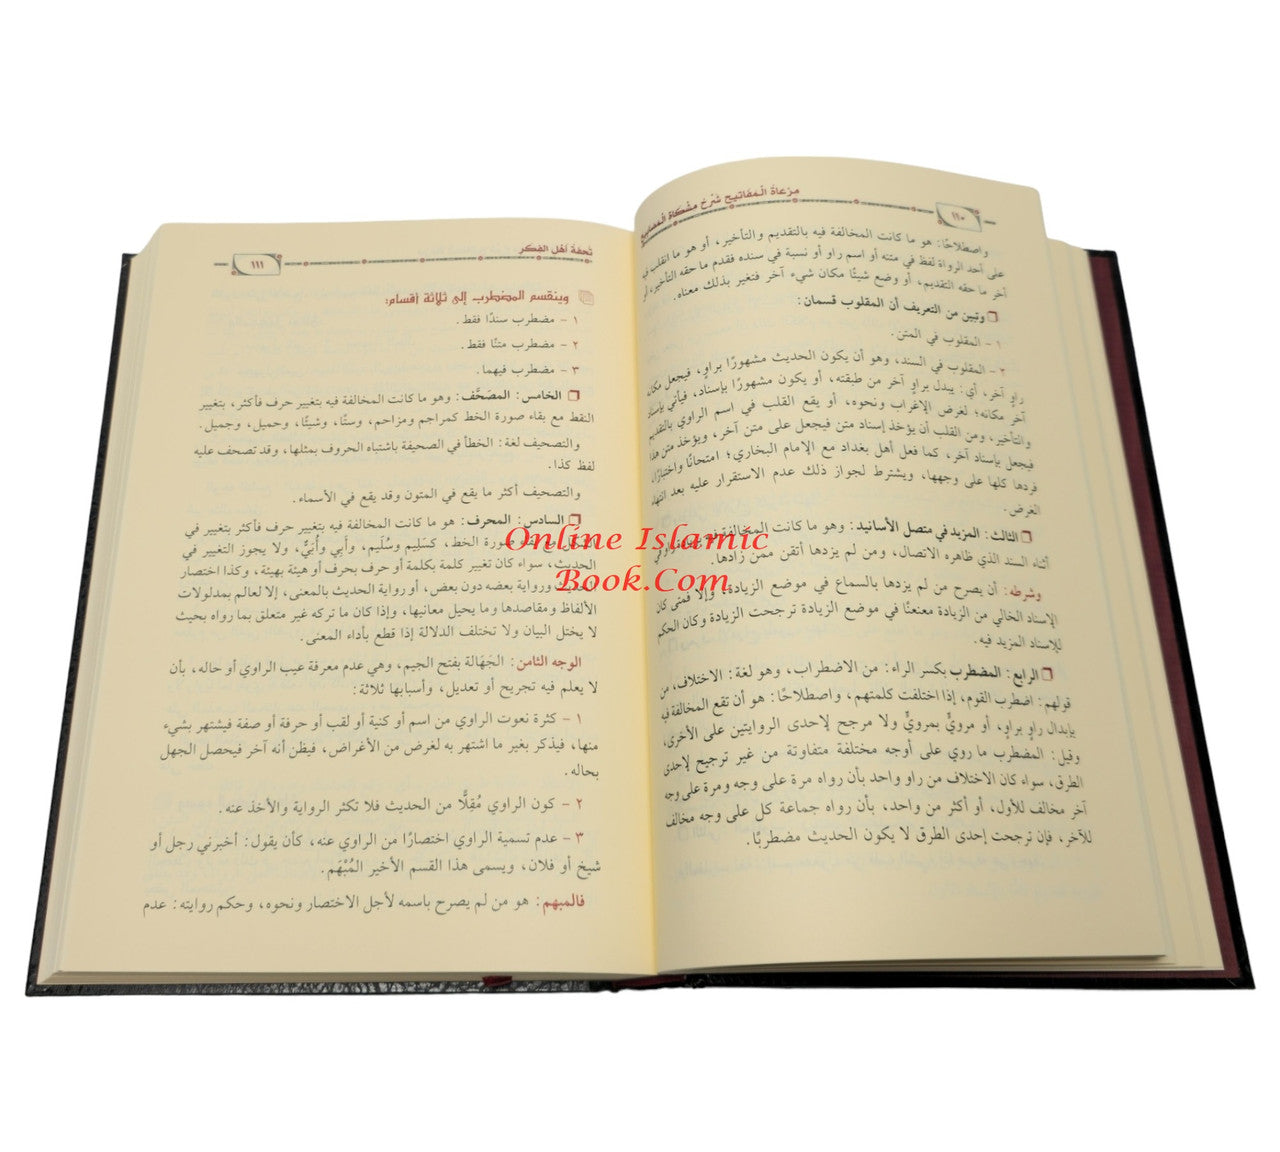 مرعاة المفاتيح شرح مشكاة المصابيح
١١٠
واصطلاحًا: هو ما كانت المخالفة فيه بالتقديم والتأخير، أو هو ما انقلب فيه
على أحد الرواة لفظ في متنه أو اسم راو أو نسبة في سنده فقدم ما حقه التأخير، أو
أخر ما حقه التقديم، أو وضع شيئًا مكان شيء آخر فتغير بذلك معناه.
وتبين من التعريف أن المقلوب قسمان:
١ - المقلوب في المتن.
٢ - المقلوب في السند، وهو أن يكون الحديث مشهورًا براوٍ، فيجعل مكان
راوٍ آخر، أي: يبدل براوٍ آخر من طبقته، أو يكون مشهورًا بإسناد، فيأتي بإسناد
آخر مكانه؛ لغرض الإغراب ونحوه، أو يقع القلب في اسم الراوي بالتقديم
والتأخير، ومن القلب أن يؤخذ إسناد متن فيجعل على متن آخر، ويؤخذ متن هذا
فيجعل بإسناد آخر، كما فعل أهل بغداد مع الإمام البخاري؛ امتحانًا واختبارًا،
فردها كلها على وجهها، ويشترط لجواز ذلك عدم الاستقرار عليه بعد انتهاء
الغرض.
الثالث: المزيد في متصل الأسانيد: وهو ما كانت المخالفة فيه بزيادة راوٍ في
أثناء السند الذي ظاهره الاتصال، ومن لم يزدها أتقن ممن زادها.
وشرطه: أن يصرح من لم يزدها بالسماع في موضع الزيادة، وإلا فمتى كان
الإسناد الخالي من الزيادة معنعنًا في موضع الزيادة ترجحت الزيادة وكان الحكم
للإسناد المزيد فيه.
الرابع: المضطرب بكسر الراء: من الاضطراب، وهو لغة: الاختلاف، من
قولهم: اضطرب القوم، إذا اختلفت كلمتهم، واصطلاحًا: هو أن تقع المخالفة فيه
بإبدال راوٍ براوٍ، أو مرويٍّ بمرويٍّ ولا مرجح لإحدى الروايتين على الأخرى،
وقيل: المضطرب ما روي على أوجه مختلفة متفاوتة من غير ترجيح لإحدى
الطرق، سواء كان الاختلاف من راو واحد بأن رواه مرة على وجه ومرة على وجه
آخر مخالف للأول، أو أكثر من واحد، بأن رواه جماعة كل على وجه مخالف
للآخر، فإن ترجحت إحدى الطرق لا يكون الحديث مضطربًا.
تحفة أهل الفكر
١١١
وينقسم المضطرب إلى ثلاثة أقسام:
١ - مضطرب سندًا فقط.
٢ - مضطرب متنًا فقط.
٣ - مضطرب فيهما.
الخامس: المصَحَّف: وهو ما كانت المخالفة فيه بتغيير حرف فأكثر، بتغيير
النقط مع بقاء صورة الخط كمراجم ومزاحم، وستًا، وشيئًا، وحميل، وجميل.
والتصحيف لغة: الخطأ في الصحيفة باشتباه الحروف بمثلها، وقد تصحف عليه
لفظ كذا.
والتصحيف أكثر ما يقع في المتون وقد يقع في الأسماء.
السادس: المحرف: هو ما كانت المخالفة فيه بتغيير حرف فأكثر بتغيير في
الشكل مع بقاء صورة الخط، كسَلِيم وسُلَيم، وأبي وأُبَيٍّ، ولا يجوز التغيير في
الحديث، سواء كان تغيير كلمة بكلمة أو حرف بحرف أو هيئة بهيئة، وكذا اختصار
الحديث ورواية بعضه دون بعض، أو رواية الحديث بالمعنى، إلا لعالم بمدلولات
الألفاظ ومقاصدها وما يحيل معانيها، وإذا كان ما تركه غير متعلق بما رواه بحيث
لا يختل البيان ولا تختلف الدلالة إذا قطع بأداء المعنى.
الوجه الثامن: الجَهَالة بفتح الجيم، وهي عدم معرفة عيب الراوي أو حاله، بأن
لا يعلم فيه تجريح أو تعديل، وأسبابها ثلاثة:
١ - كثرة نعوت الراوي من اسم أو كنية أو لقب أو حرفة أو صفة فيشتهر بشيء
منها، فيذكر بغير ما اشتهر به لغرض من الأغراض، فيظن أنه آخر فيحصل الجهل
بحاله.
٢ - كون الراوي مُقِلًّا من الحديث فلا تكثر الرواية والأخذ عنه.
٣ - عدم تسمية الراوي اختصارًا من الراوي عنه، كأن يقول: أخبرني رجل أو
شيخ أو فلان، ويسمى هذا القسم الأخير المُبْهَم.
فالمبهم: هو من لم يصرح باسمه لأجل الاختصار ونحوه، وحكم روايته: عدم
Online Islamic
Book.Com